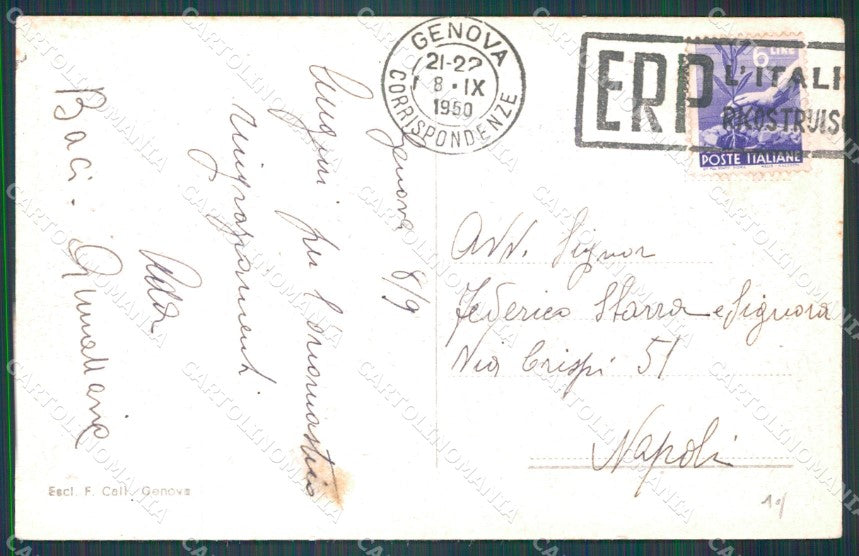 GENOVA
21-22
8 · IX
1950
CORRISPONDENZE
ERP L'ITALI
RICOSTRUISC
6 LIRE
POSTE ITALIANE
Genova 8/9
Auguri per l'onomastico
ringraziamenti
Ada
Baci. Annamaria
Avv. Signor
Federico Starra e Signora
Via Crispi 51
Napoli
Escl. F. Call. Genova
CARTOLINOMANIA